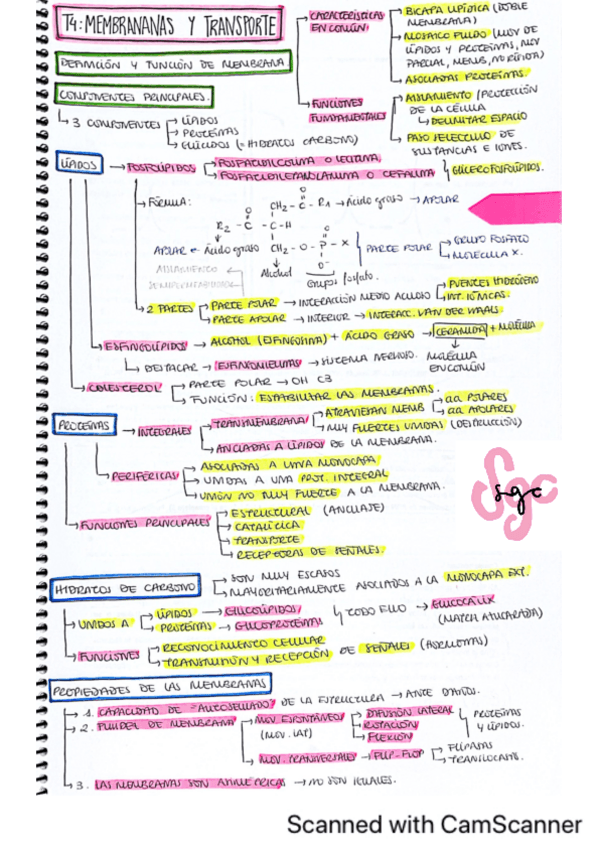 T4: MEMBRANANAS Y TRANSPORTE
CARACTERÍSTICAS EN COMÚN
BICAPA LIPÍDICA (DOBLE MEMBRANA)
MOSAICO FLUIDO (MOV DE LÍPIDOS Y PROTEÍNAS, MOV PARCIAL, MEMB, NO RÍGIDA)
ASOCIADAS PROTEÍNAS.
DEFINICIÓN Y FUNCIÓN DE MEMBRANA
FUNCIONES FUNDAMENTALES
AISLAMIENTO (PROTECCIÓN DE LA CÉLULA
DELIMITAR ESPACIO
PASO SELECTIVO DE SUSTANCIAS E IONES.
COMPONENTES PRINCIPALES.
3 COMPONENTES
LÍPIDOS
PROTEÍNAS
GLÚCIDOS (= HIDRATOS CARBONO)
LÍPIDOS → FOSFOLÍPIDOS
FOSFATIDILCOLINA O LECITINA
FOSFATIDILETANOLAMINA O CEFALINA
GLICEROFOSFOLÍPIDOS.
FÓRMULA:
O
CH2 - C - R1 → Ácido graso → APOLAR
O
R2 - C - C - H
O
APOLAR ← Ácido graso CH2 - O - P - X
O-
PARTE POLAR
GRUPO FOSFATO
MOLÉCULA X.
AISLAMIENTO
Alcohol
Grupo fosfato.
2 PARTES
PARTE POLAR → INTERACCIÓN MEDIO ACUOSO
PUENTES HIDRÓGENO
INT. IÓNICAS.
PARTE APOLAR → INTERIOR → INTERACC. VAN DER WAALS.
ESFINGOLÍPIDOS → ALCOHOL (ESFINGOSINA) + ÁCIDO GRASO → CERAMIDA + MOLÉCULA
MOLÉCULA EN COMÚN
DESTACAR → ESFINGOMIELINAS → SISTEMA NERVIOSO.
COLESTEROL
PARTE POLAR → OH C3
FUNCIÓN: ESTABILIZAR LAS MEMBRANAS.
PROTEÍNAS → INTEGRALES
TRANSMEMBRANA
ATRAVIESAN MEMB
aa POLARES
aa APOLARES
MUY FUERTES UNIDAS (DESTRUCCIÓN)
ANCLADAS A LÍPIDOS DE LA MEMBRANA.
PERIFÉRICAS
ASOCIADAS A UNA MONOCAPA
UNIDAS A UNA PROT. INTEGRAL
UNIÓN NO MUY FUERTE A LA MEMBRANA.
sgc
FUNCIONES PRINCIPALES
ESTRUCTURAL (ANCLAJE)
CATALÍTICA
TRANSPORTE
RECEPTORAS DE SEÑALES.
HIDRATOS DE CARBONO
SON MUY ESCASOS
MAYORITARIAMENTE ASOCIADOS A LA MONOCAPA EXT.
UNIDOS A
LÍPIDOS → GLUCOLÍPIDOS
PROTEÍNAS → GLUCOPROTEÍNAS
TODO ELLO → GLUCOCÁLIX
FUNCIONES
RECONOCIMIENTO CELULAR
TRANSMISIÓN Y RECEPCIÓN DE SEÑALES (HORMONAS)
PROPIEDADES DE LAS MEMBRANAS
1. CAPACIDAD DE "AUTOSELLADO" DE LA ESTRUCTURA → ANTE DAÑOS.
2. FLUIDEZ DE MEMBRANA
MOV. ESPONTÁNEOS (MOV. LAT)
DIFUSIÓN LATERAL
ROTACIÓN
FLEXIÓN
PROTEÍNAS Y LÍPIDOS.
MOV. TRANSVERSALES → FLIP-FLOP
FLIPASAS
TRANSLOCASAS.
3. LAS MEMBRANAS SON ASIMÉTRICAS → NO SON IGUALES.
Scanned with CamScanner